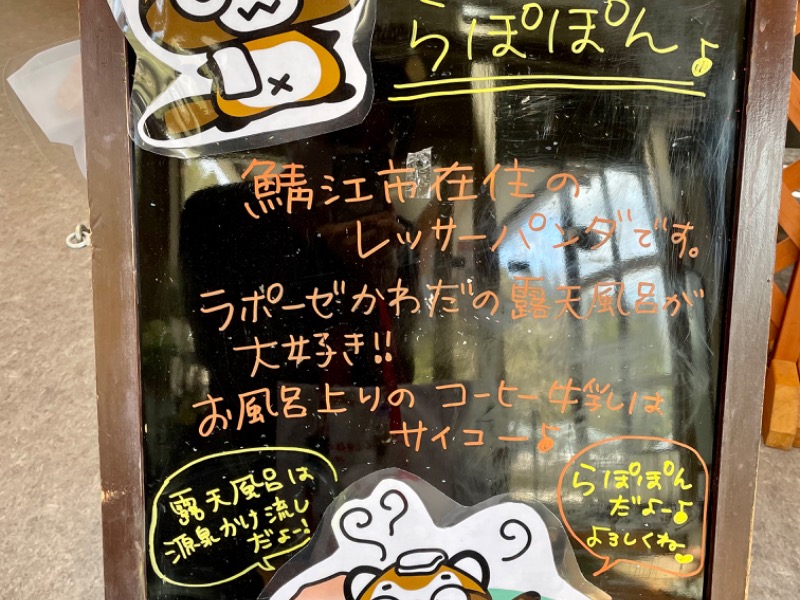 らぽぽん♪
鯖江市在住の
レッサーパンダです。
ラポーゼかわだの露天風呂が
大好き!!
お風呂上りのコーヒー牛乳は
サイコー♪
露天風呂は
源泉かけ流し
だよー!
らぽぽん
だよー♪
よろしくねー♥